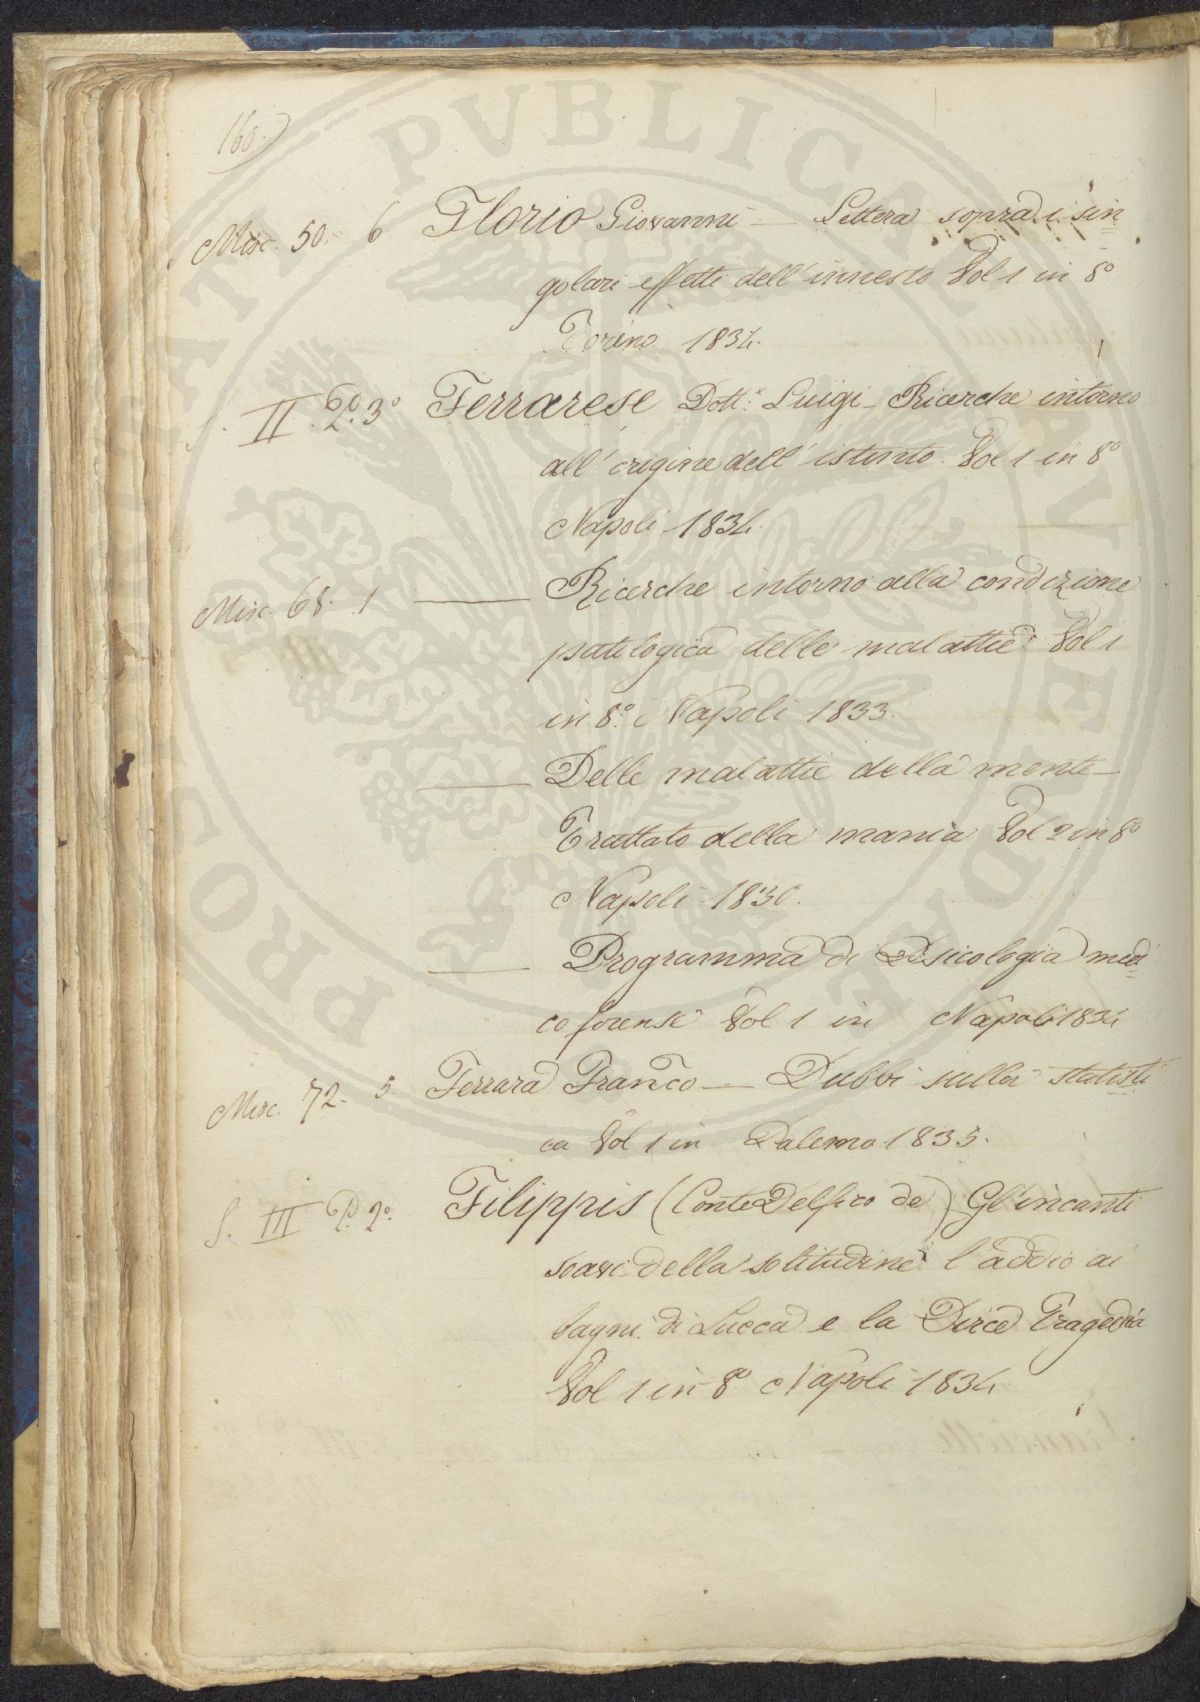 160.
Misc. 50. 6 Florio Giovanni — Lettera sopra i sin=
golari effetti dell' innesto Vol 1 in 8º
Torino 1834.
S. II. P. 3º Ferrarese Dott.r Luigi — Ricerche intorno
all' origine dell' istinto. Vol 1 in 8º
Napoli 1834.
Misc. 68. 1 —— Ricerche intorno alla condizione
patologica delle malattie Vol 1
in 8º Napoli 1833.
—— Delle malattie della mente —
Trattato della mania Vol 2 in 8º
Napoli 1830.
—— Programma di Psicologia medi=
co forense Vol 1 in Napoli 1834
Misc. 72. 5. Ferrara Franco — Dubbi sulla statisti=
ca Vol 1 in Palermo 1835.
S. III P. 2º. Filippis (Conte Delfico de) Gl'incanti
soavi della solitudine l'addio ai
bagni di Lucca e la Dirce Tragedia
Vol 1 in 8º Napoli 1834
PROSPERATI PVBLICAE PROVIDENDAE